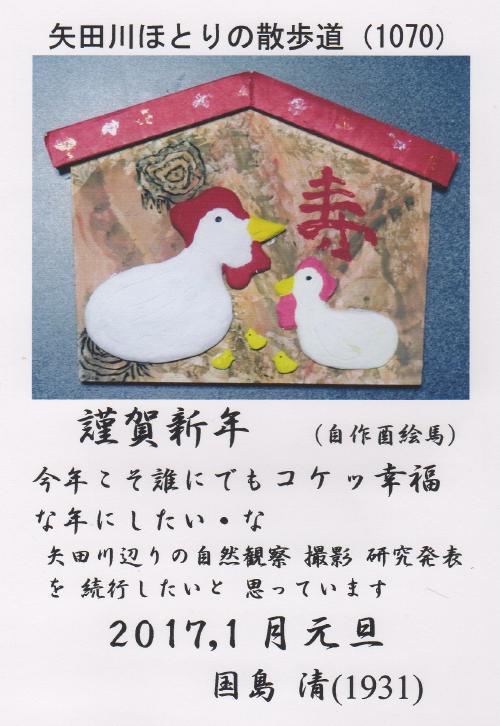 矢田川ほとりの散歩道（1070）
寿
謹賀新年
（自作酉絵馬）
今年こそ誰にでもコケッ幸福
な年にしたい・な
矢田川辺りの自然観察 撮影 研究発表
を 続行したいと 思っています
2017,1月元旦
国島 清(1931)